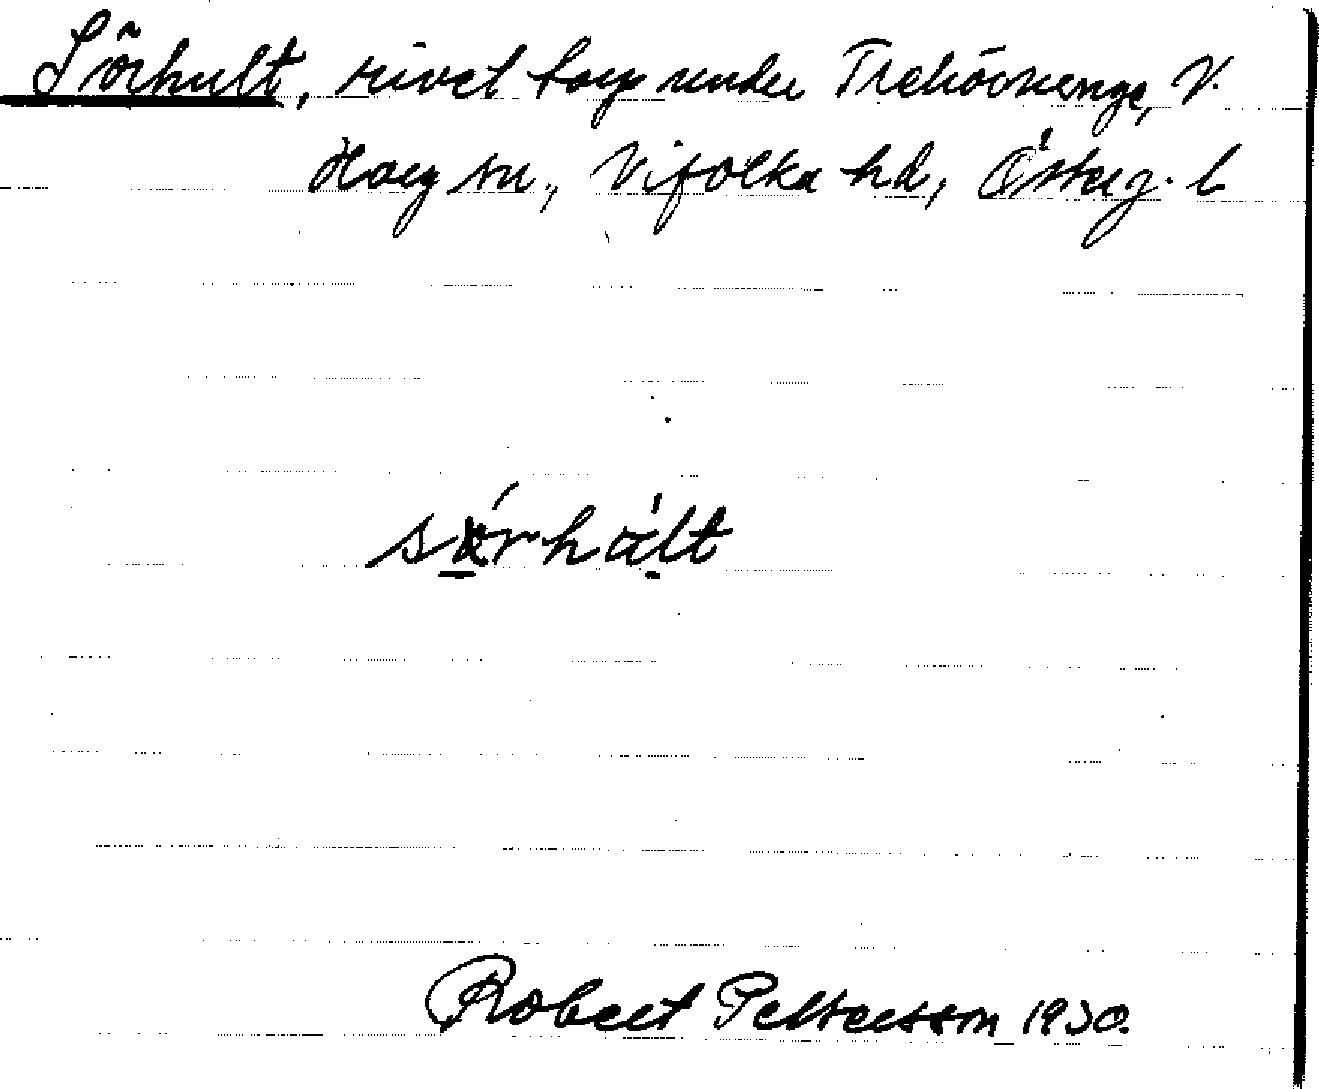 Sörhult, rivet torp under Trehörnenge, V.
Harg sn., Vifolka hd, Österg. l
sörhált
Robert Pettersson 1930.